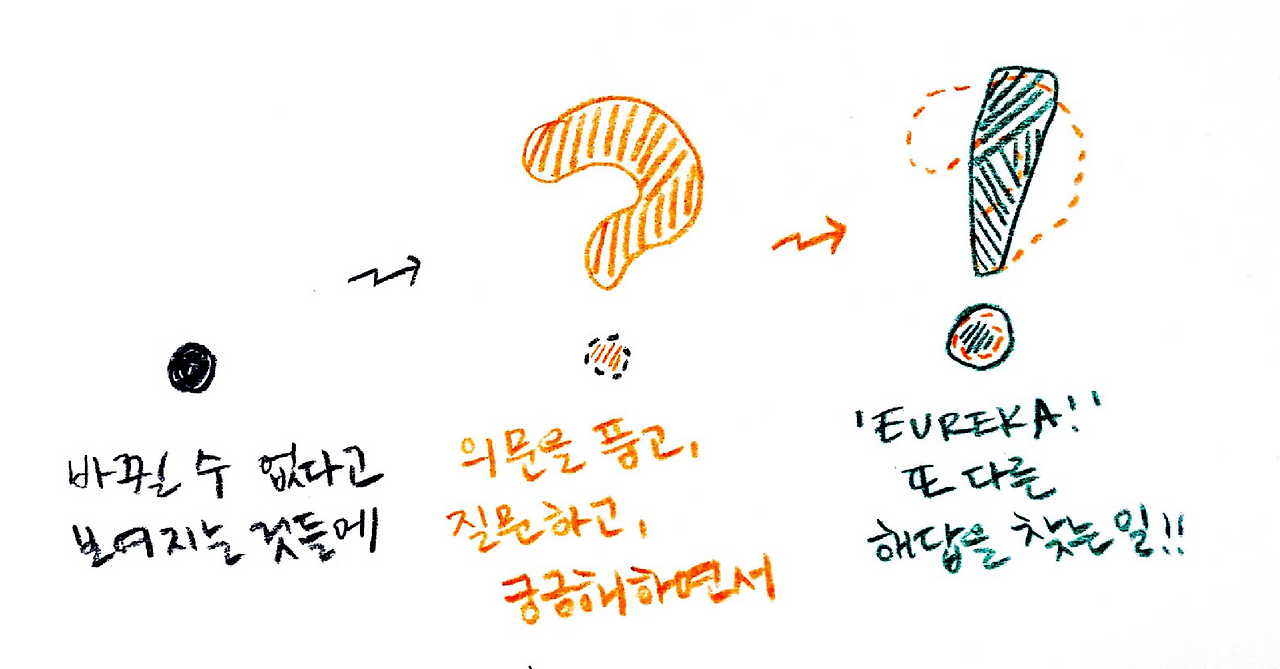 바뀔 수 없다고
보여지는 것들에
의문을 품고,
질문하고,
궁금해하면서
'EUREKA!'
또 다른
해답을 찾는 일!!